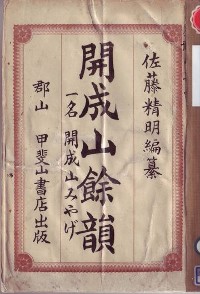 佐藤精明編纂
開成山餘韻
一名 開成山みやげ
郡山 甲斐山書店出版